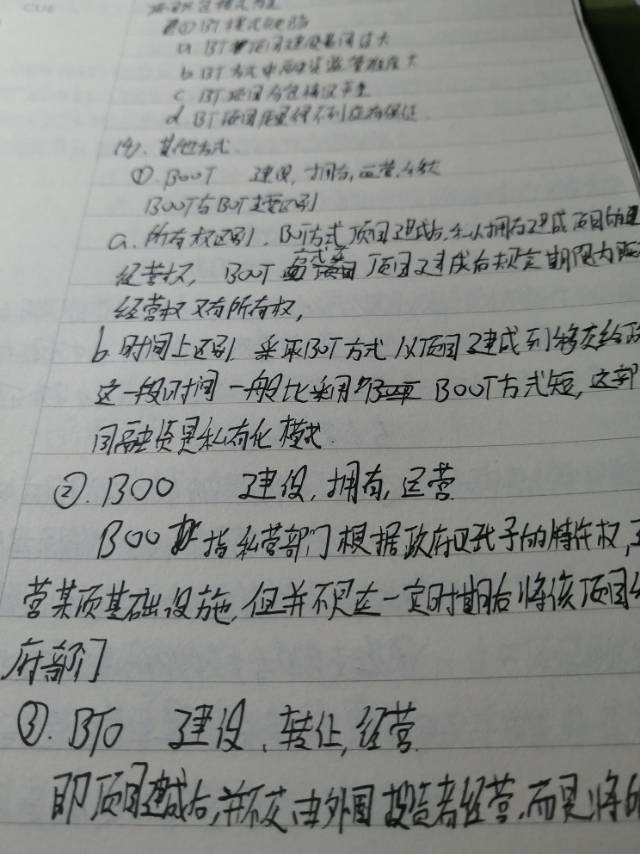 BT模式
a BT项目建设费用过大
b BT方式中融资监管难度大
c BT项目分包情况严重
d BT项目质量得不到应有保证
19. 其他方式
①. BOOT 建设, 拥有, 运营, 移交
BOOT与BOT主要区别
a. 所有权区别. BOT方式 项目建成后, 私人拥有建成项目的
经营权, BOOT 方式是 项目建成后规定期限内
经营权又有所有权,
b. 时间上区别 采取BOT方式 从项目建成到移交给政
这一段时间 一般比采用 BOOT方式短, 这
间融资是私有化模式.
②. BOO 建设, 拥有, 运营
BOO 指私营部门根据政府赋予的特许权,
营某项基础设施, 但并不是在一定时期后将该项目
府部门
③. BTO 建设、转让, 经营
即项目建成后, 并不交由外国投资者经营, 而是将